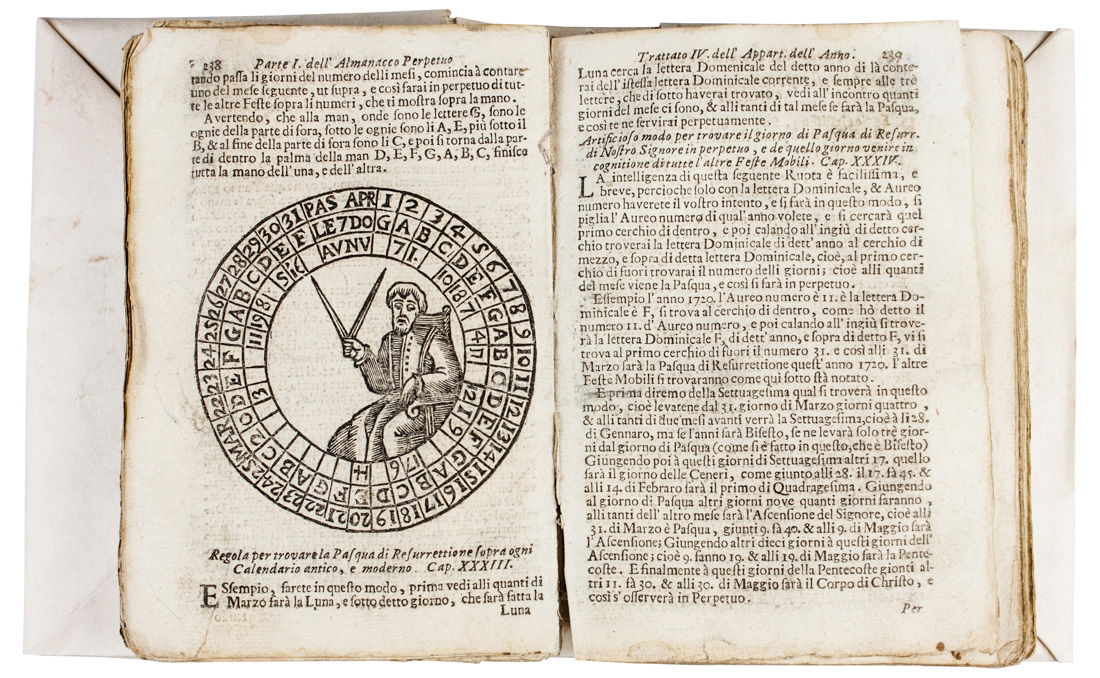 238 Parte I. dell' Almanacco Perpetuo
tando passa li giorni del numero delli mesi, comincia à contare
uno del mese seguente, ut supra, e così farai in perpetuo di tut-
te le altre Feste sopra li numeri, che ti mostra sopra la mano.
Avertendo, che alla man, onde sono le lettere G, sono le
ognie della parte di fora, sotto le ognie sono li A, E, più sotto il
B, & al fine della parte di fora sono li C, e poi si torna dalla par-
te di dentro la palma della man D, E, F, G, A, B, C, finisco
tutta la mano dell'una, e dell'altra.
PAS APR 1 2 3 4 5 6 7 8 9 10 11 12 13 14 15 16 17 18 19 20 21 22 23 24 25 MAR 22 23 24 25 26 27 28 29 30 31
LE 7 DO G A B C D E F G A B C D E F G A B C D E F G A B C D E F G A B C D E F
AVNV
Regola per trovare la Pasqua di Resurrettione sopra ogni
Calendario antico, e moderno. Cap. XXXIII.
ESsempio, farete in questo modo, prima vedi alli quanti di
Marzo sarà la Luna, e sotto detto giorno, che sarà fatta la
Luna
Trattato IV. dell' Appart. dell' Anno. 239
Luna cerca la lettera Domenicale del detto anno di là conte-
rai dell'istessa lettera Dominicale corrente, e sempre alle trè
lettere, che di sotto haverai trovato, vedi all'incontro quanti
giorni del mese ci sono, & alli tanti di tal mese se farà la Pasqua,
e così te ne servirai perpetuamente.
Artificioso modo per trovare il giorno di Pasqua di Resurr.
di Nostro Signore in perpetuo, e de quello giorno venire in
cognitione di tutte l'altre Feste Mobili. Cap. XXXIV.
LA intelligenza di questa seguente Ruota è facilissima, e
breve, percioche solo con la lettera Dominicale, & Aureo
numero haverete il vostro intento, e si farà in questo modo, si
piglia l'Aureo numero di qual'anno volete, e si cercarà quel
primo cerchio di dentro, e poi calando all'ingiù di detto cer-
chio troverai la lettera Dominicale di dett'anno al cerchio di
mezzo, e sopra di detta lettera Dominicale, cioè, al primo cer-
chio di fuori trovarai il numero delli giorni; cioè alli quanti
del mese viene la Pasqua, e così si farà in perpetuo.
Essempio l'anno 1720. l'Aureo numero è 11. è la lettera Do-
minicale è F, si trova al cerchio di dentro, come hò detto il
numero 11. d'Aureo numero, e poi calando all'ingiù si trove-
rà la lettera Dominicale F, di dett'anno, e sopra di detto F, vi si
trova al primo cerchio di fuori il numero 31. e così alli 31. di
Marzo sarà la Pasqua di Resurrettione quest'anno 1720. l'altre
Feste Mobili si trovaranno come qui sotto stà notato.
E prima diremo della Settuagesima qual si troverà in questo
modo, cioè levatene dal 31. giorno di Marzo giorni quattro,
& alli tanti di due mesi avanti verrà la Settuagesima, cioè à li 28.
di Gennaro, ma se l'anni sarà Bisesto, se ne levarà solo trè gior-
ni dal giorno di Pasqua (come si è fatto in questo, che è Bisesto)
Giungendo poi à questi giorni di Settuagesima altri 17. quello
sarà il giorno delle Ceneri, come giunto alli 28. il 17. fà 45. &
alli 14. di Febraro sarà il primo di Quadragesima. Giungendo
al giorno di Pasqua altri giorni nove quanti giorni saranno,
alli tanti dell'altro mese sarà l'Ascensione del Signore, cioè alli
31. di Marzo è Pasqua, giunti 9. fà 40. & alli 9. di Maggio sarà
l'Ascensione; Giungendo altri dieci giorni à questi giorni dell'
Ascensione; cioè 9. fanno 19. & alli 19. di Maggio sarà la Pente-
coste. E finalmente à questi giorni della Pentecoste gionti al-
tri 11. fà 30. & alli 30. di Maggio sarà il Corpo di Christo, e
così s'osserverà in Perpetuo.
Per